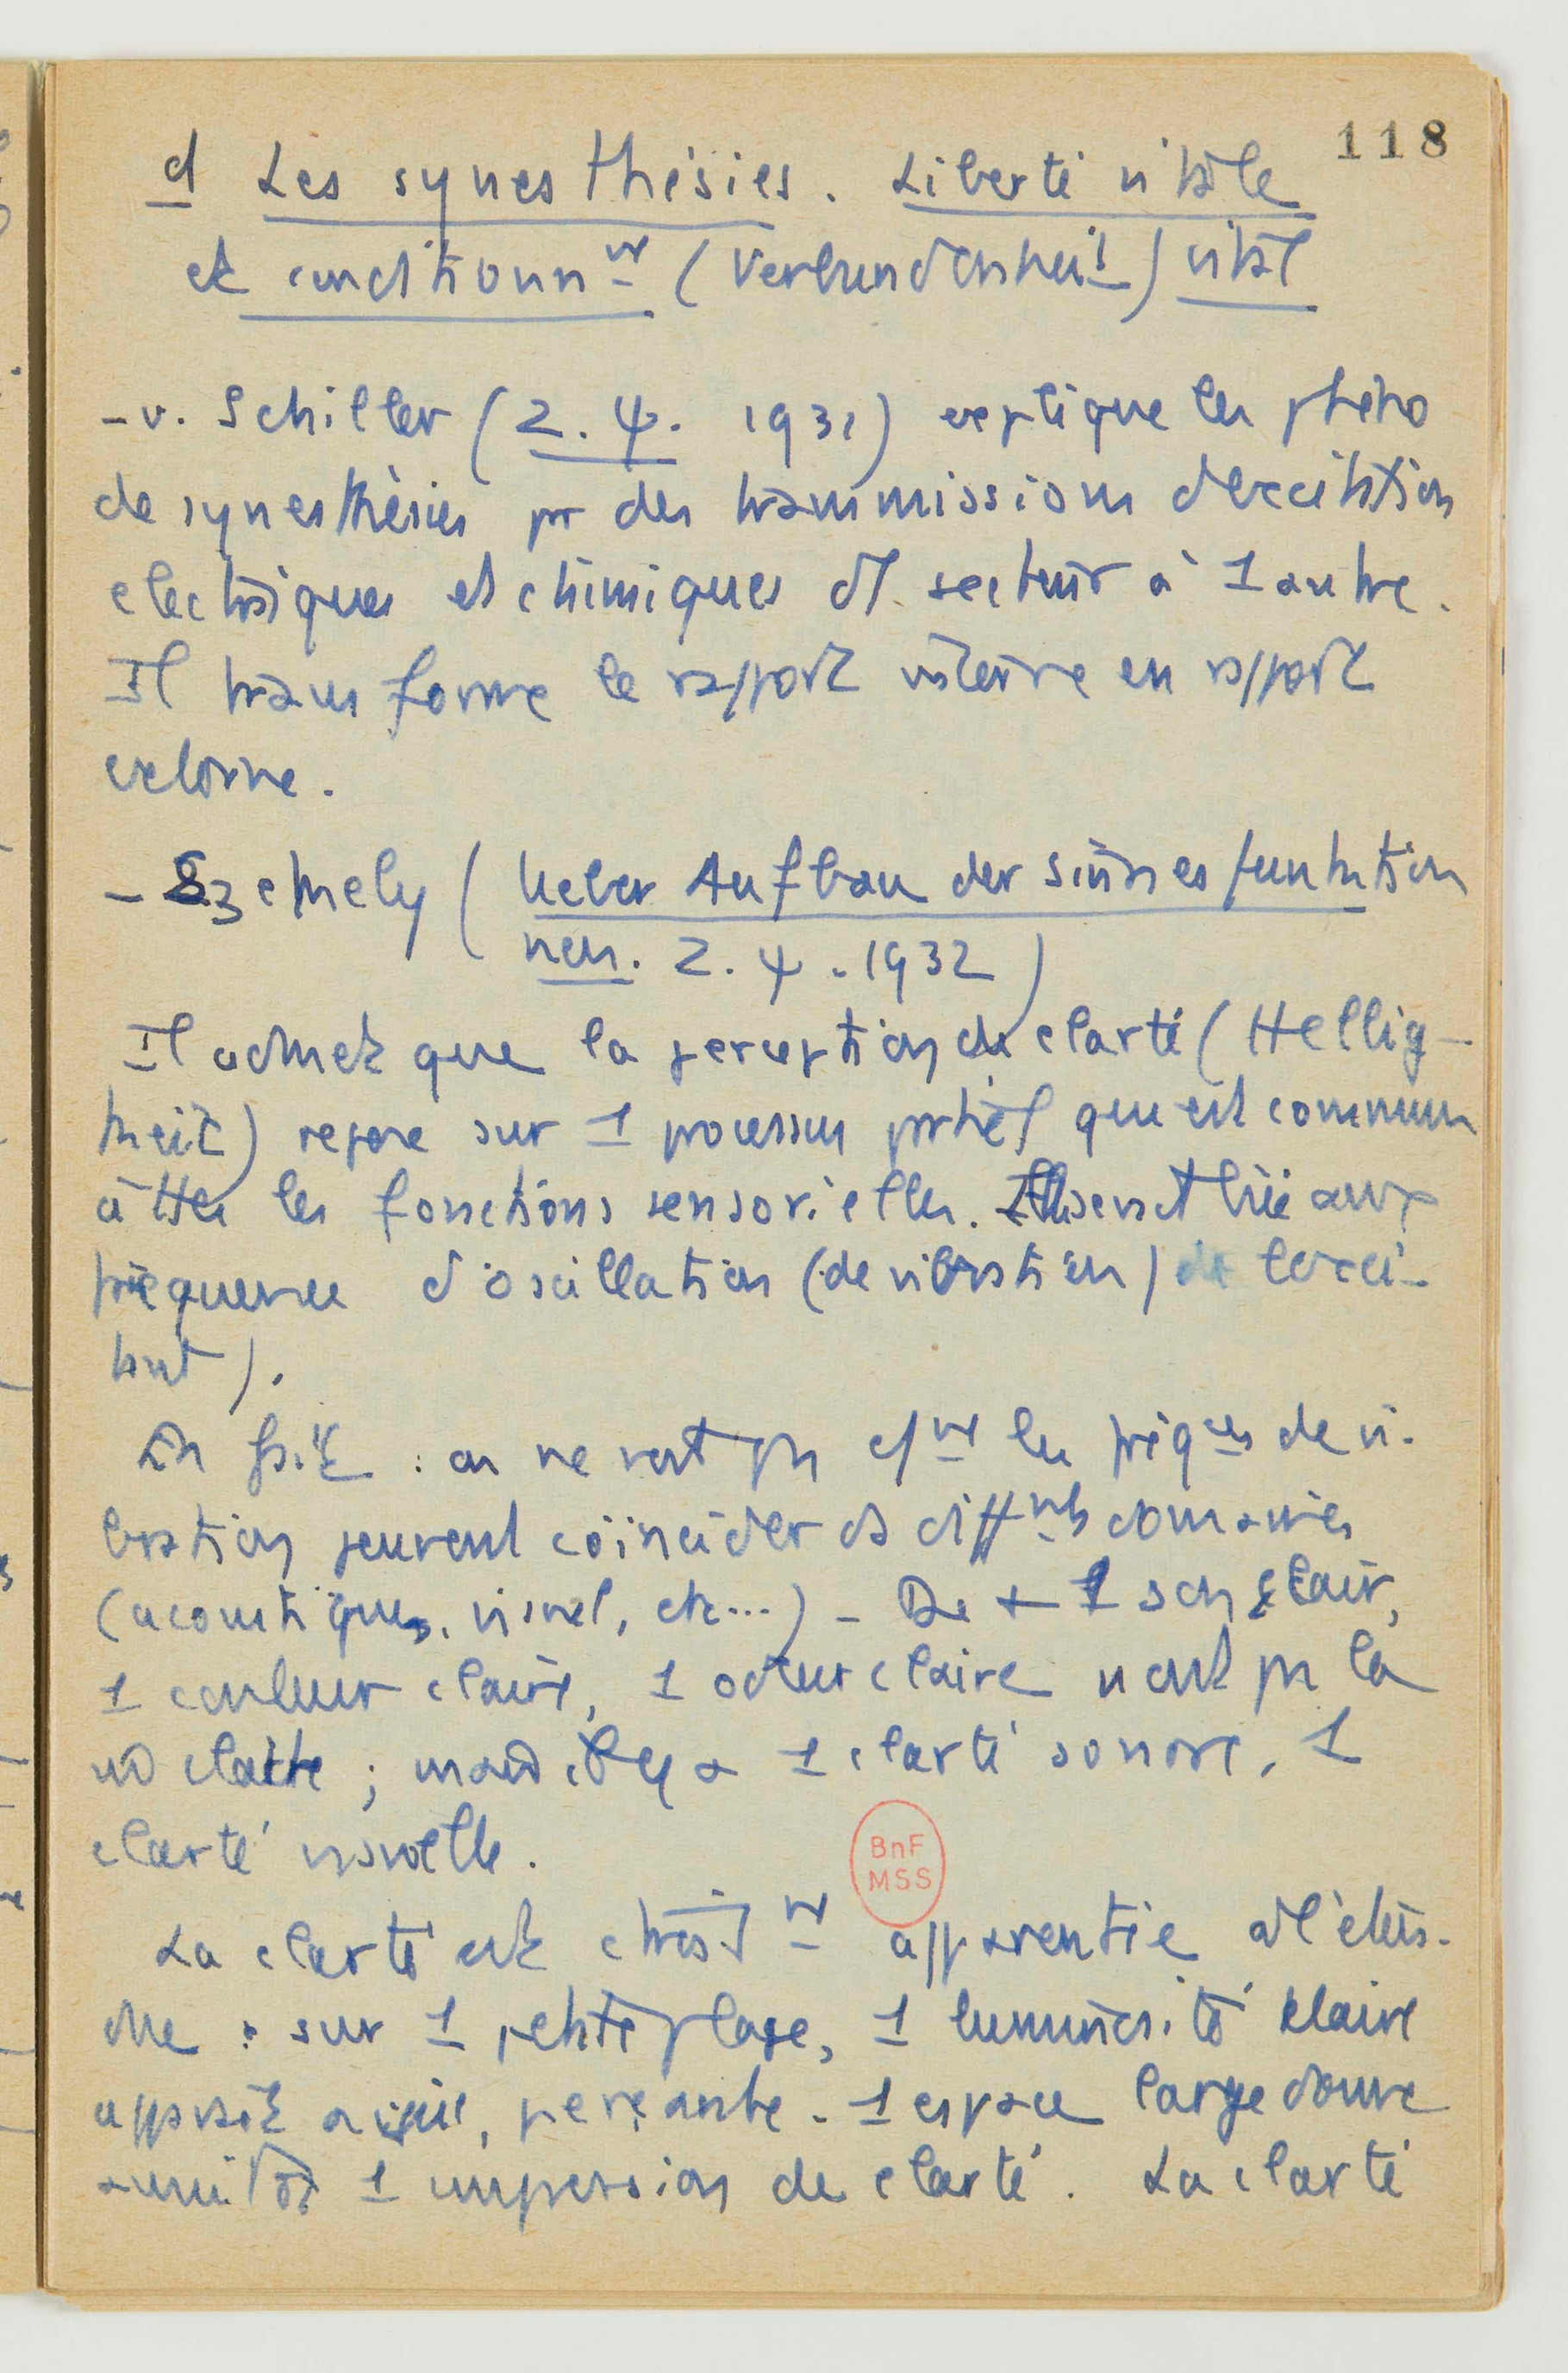 118
d Les synesthésies. Liberté vitale
et conditionnt (Verbundenheit) vital
- v. Schiller (Z. Ψ. 1931) explique les phéno
de synesthésies pr des transmissions d'excitation
électriques et chimiques d'1 secteur à 1 autre.
Il transforme le rapport interne en rapport
externe.
- Szekely (Ueber Aufbau der Sinnesfunktion
nen. Z. Ψ. 1932)
Il admet que la perception de clarté (Hellig-
keit) repose sur 1 processus partiel qui est commun
à ttes les fonctions sensorielles. Elle serait liée aux
fréquences d'oscillation (de vibration) de l'exci-
tant).
En fait : on ne voit pas cmt les fréqces de vi-
bration peuvent coïncider ds diffnts domaines
(acoustiques, visuel, etc...) - De + 1 son clair,
1 couleur claire, 1 odeur claire n'ont pas la
clarté ; 1 clarté sonore, 1
clarté visuelle.
La clarté est apparentie à l'éten-
due : sur 1 petite plage, 1 luminosité claire
apparaît aiguë, perçante. 1 espace large donne
aussitôt 1 impression de clarté. La clarté
BnF
MSS